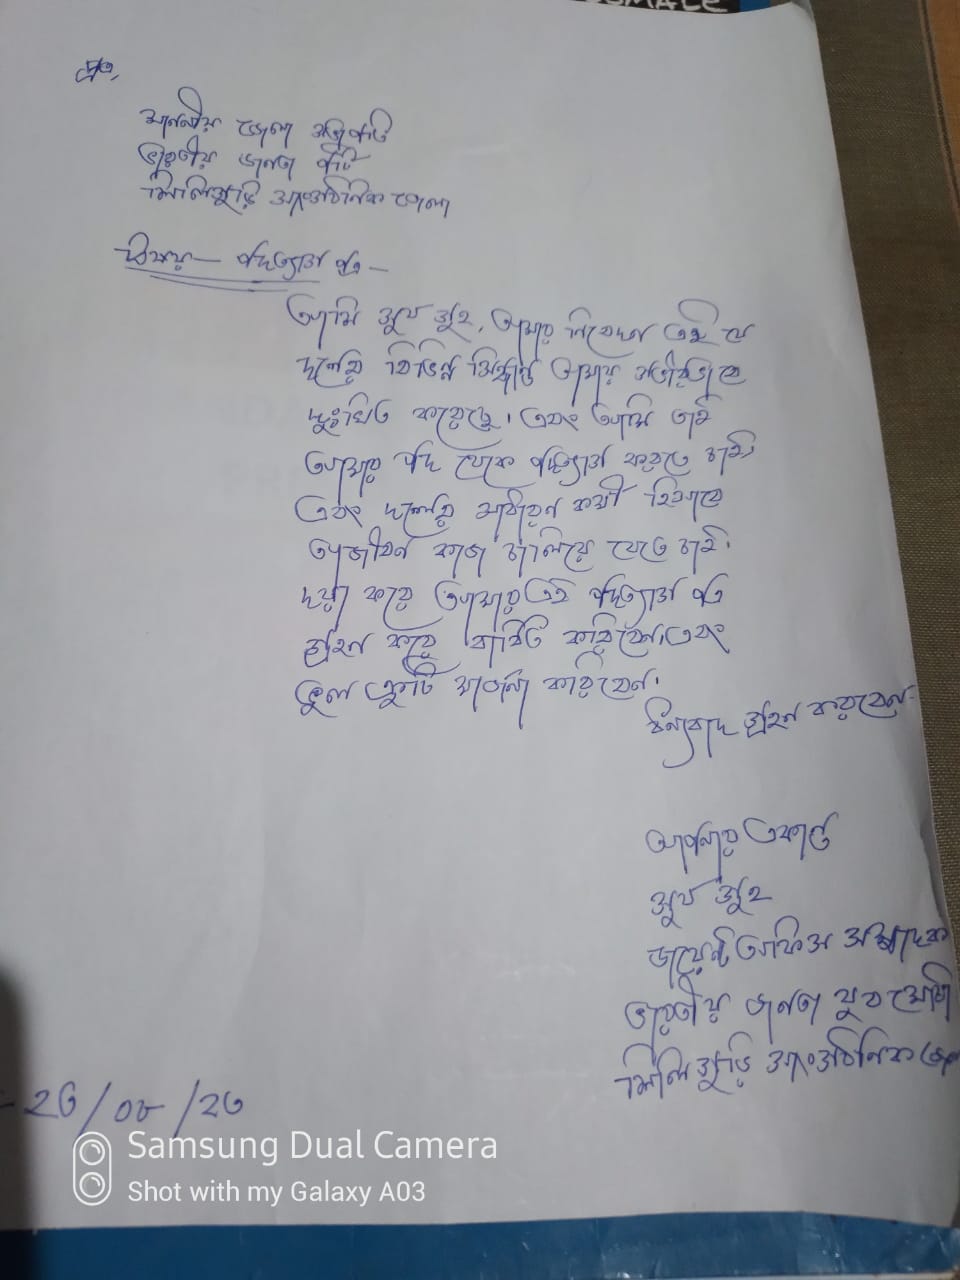 MALE
প্রতি,
মাননীয় জেলা সভাপতি
ভারতীয় জনতা পার্টি
শিলিগুড়ি সাংগঠনিক জেলা
বিষয় — পদত্যাগ পত্র —
আমি শুভ গুহ, আমার নিবেদন এই যে
দলের বিভিন্ন সিদ্ধান্ত আমায় গভীরভাবে
দুঃখিত করেছে। এবং আমি তাই
আমার পদ থেকে পদত্যাগ করতে চাই,
এবং দলের সাধারণ কর্মী হিসাবে
আজীবন কাজ চালিয়ে যেতে চাই।
দয়া করে আমার এই পদত্যাগ পত্র
গ্রহণ করে বাধিত করিবেন। এবং
ভুল ত্রুটি মার্জনা করিবেন।
ধন্যবাদ গ্রহণ করবেন-
আপনার একান্ত
শুভ গুহ
জয়েন্ট অফিস সম্পাদক
ভারতীয় জনতা যুব মোর্চা
শিলিগুড়ি সাংগঠনিক
- 26/08/20
Samsung Dual Camera
Shot with my Galaxy A03